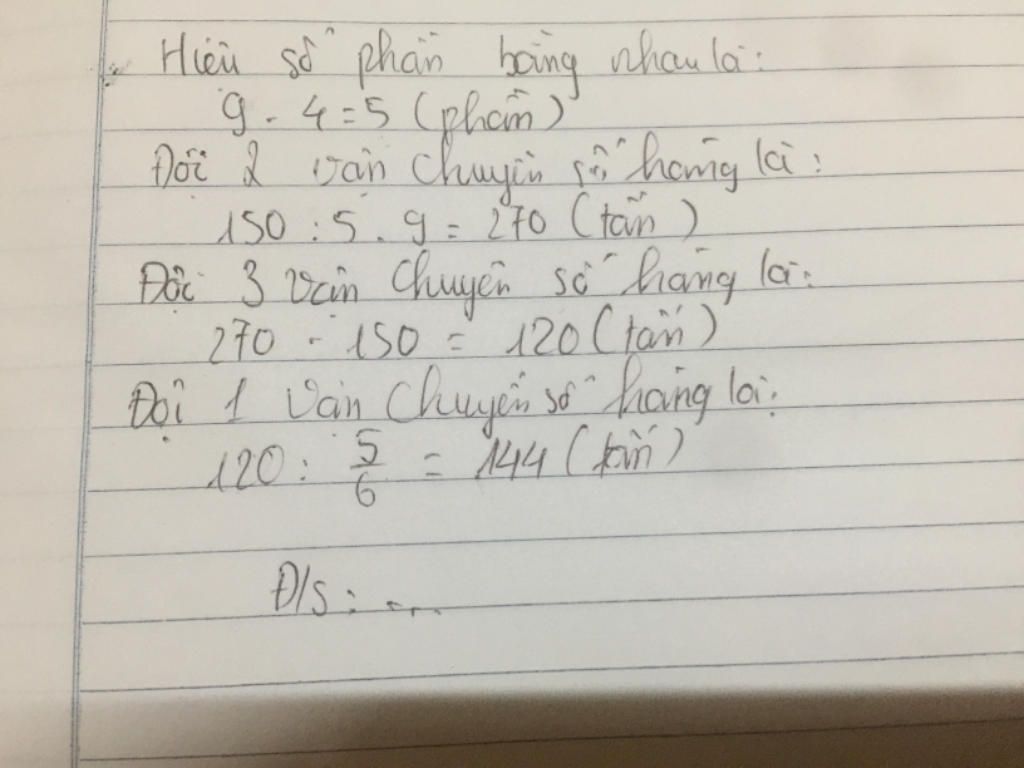 Hiệu số phần bằng nhau là:
9 - 4 = 5 (phần)
Đội 2 vận chuyển số hàng là:
150 : 5 . 9 = 270 (tấn)
Đội 3 vận chuyển số hàng là:
270 - 150 = 120 (tấn)
Đội 1 vận chuyển số hàng là:
120 : 5/6 = 144 (tấn)
Đ/S : ....